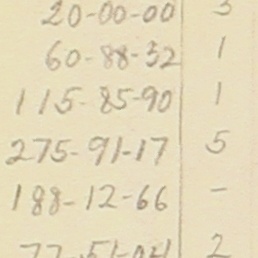 20-00-00 3
60-88-32 1
115-85-90 1
275-91-17 5
188-12-66 -
77-51-04 2